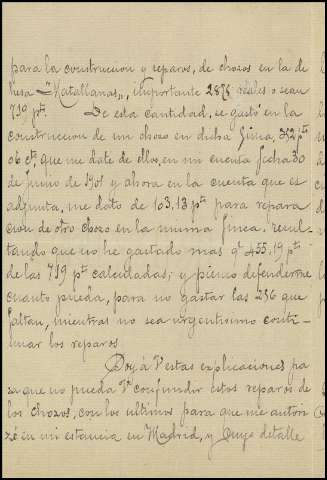 para la construccion y reparos, de chozos en la de
hesa "Matallanas", importante 2876 reales o sean
719 pts. De esta cantidad, se gastó en la
construccion de un chozo en dicha finca, 352 pts
06 cts, que me date de ellos, en mi cuenta fecha 30
de junio de 1901 y ahora en la cuenta que es
adjunta, me dato de 103,13 pts para repara
cion de otro chozo en la misma finca. resul-
tando que no he gastado mas qe 455,19 pts
de las 719 pts calculadas; y pienso defenderme
cuanto pueda, para no gastar las 236 que
faltan, mientras no sea urgentisimo conti-
nuar los reparos.
Doy á V estas explicaciones pa
ra que no pueda Vd confundir estos reparos de
los chozos, con los ultimos para que me autori
zó en mi estancia en Madrid, y cuyo detalle